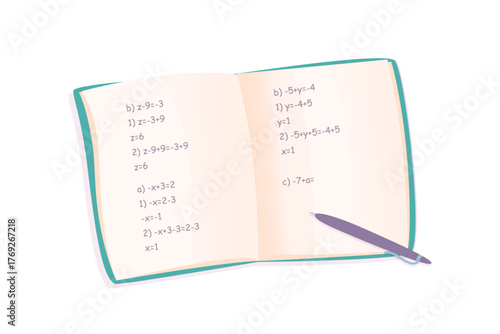 b) z-9=-3
1) z=-3+9
z=6
2) z-9+9=-3+9
z=6
a) -x+3=2
1) -x=2-3
-x=-1
2) -x+3-3=2-3
x=1
b) -5+y=-4
1) y=-4+5
y=1
2) -5+y+5=-4+5
x=1
c) -7+a=
Adobe Stock | #1769267218